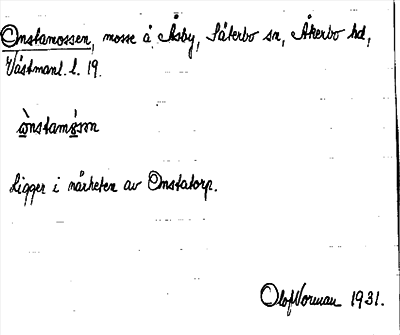 Onstamossen, mosse å Åsby, Säterbo sn, Åkerbo hd,
Västmanl. l. 19.
ònstammòssn
Ligger i närheten av Onstatorp.
Olof Norman 1931.